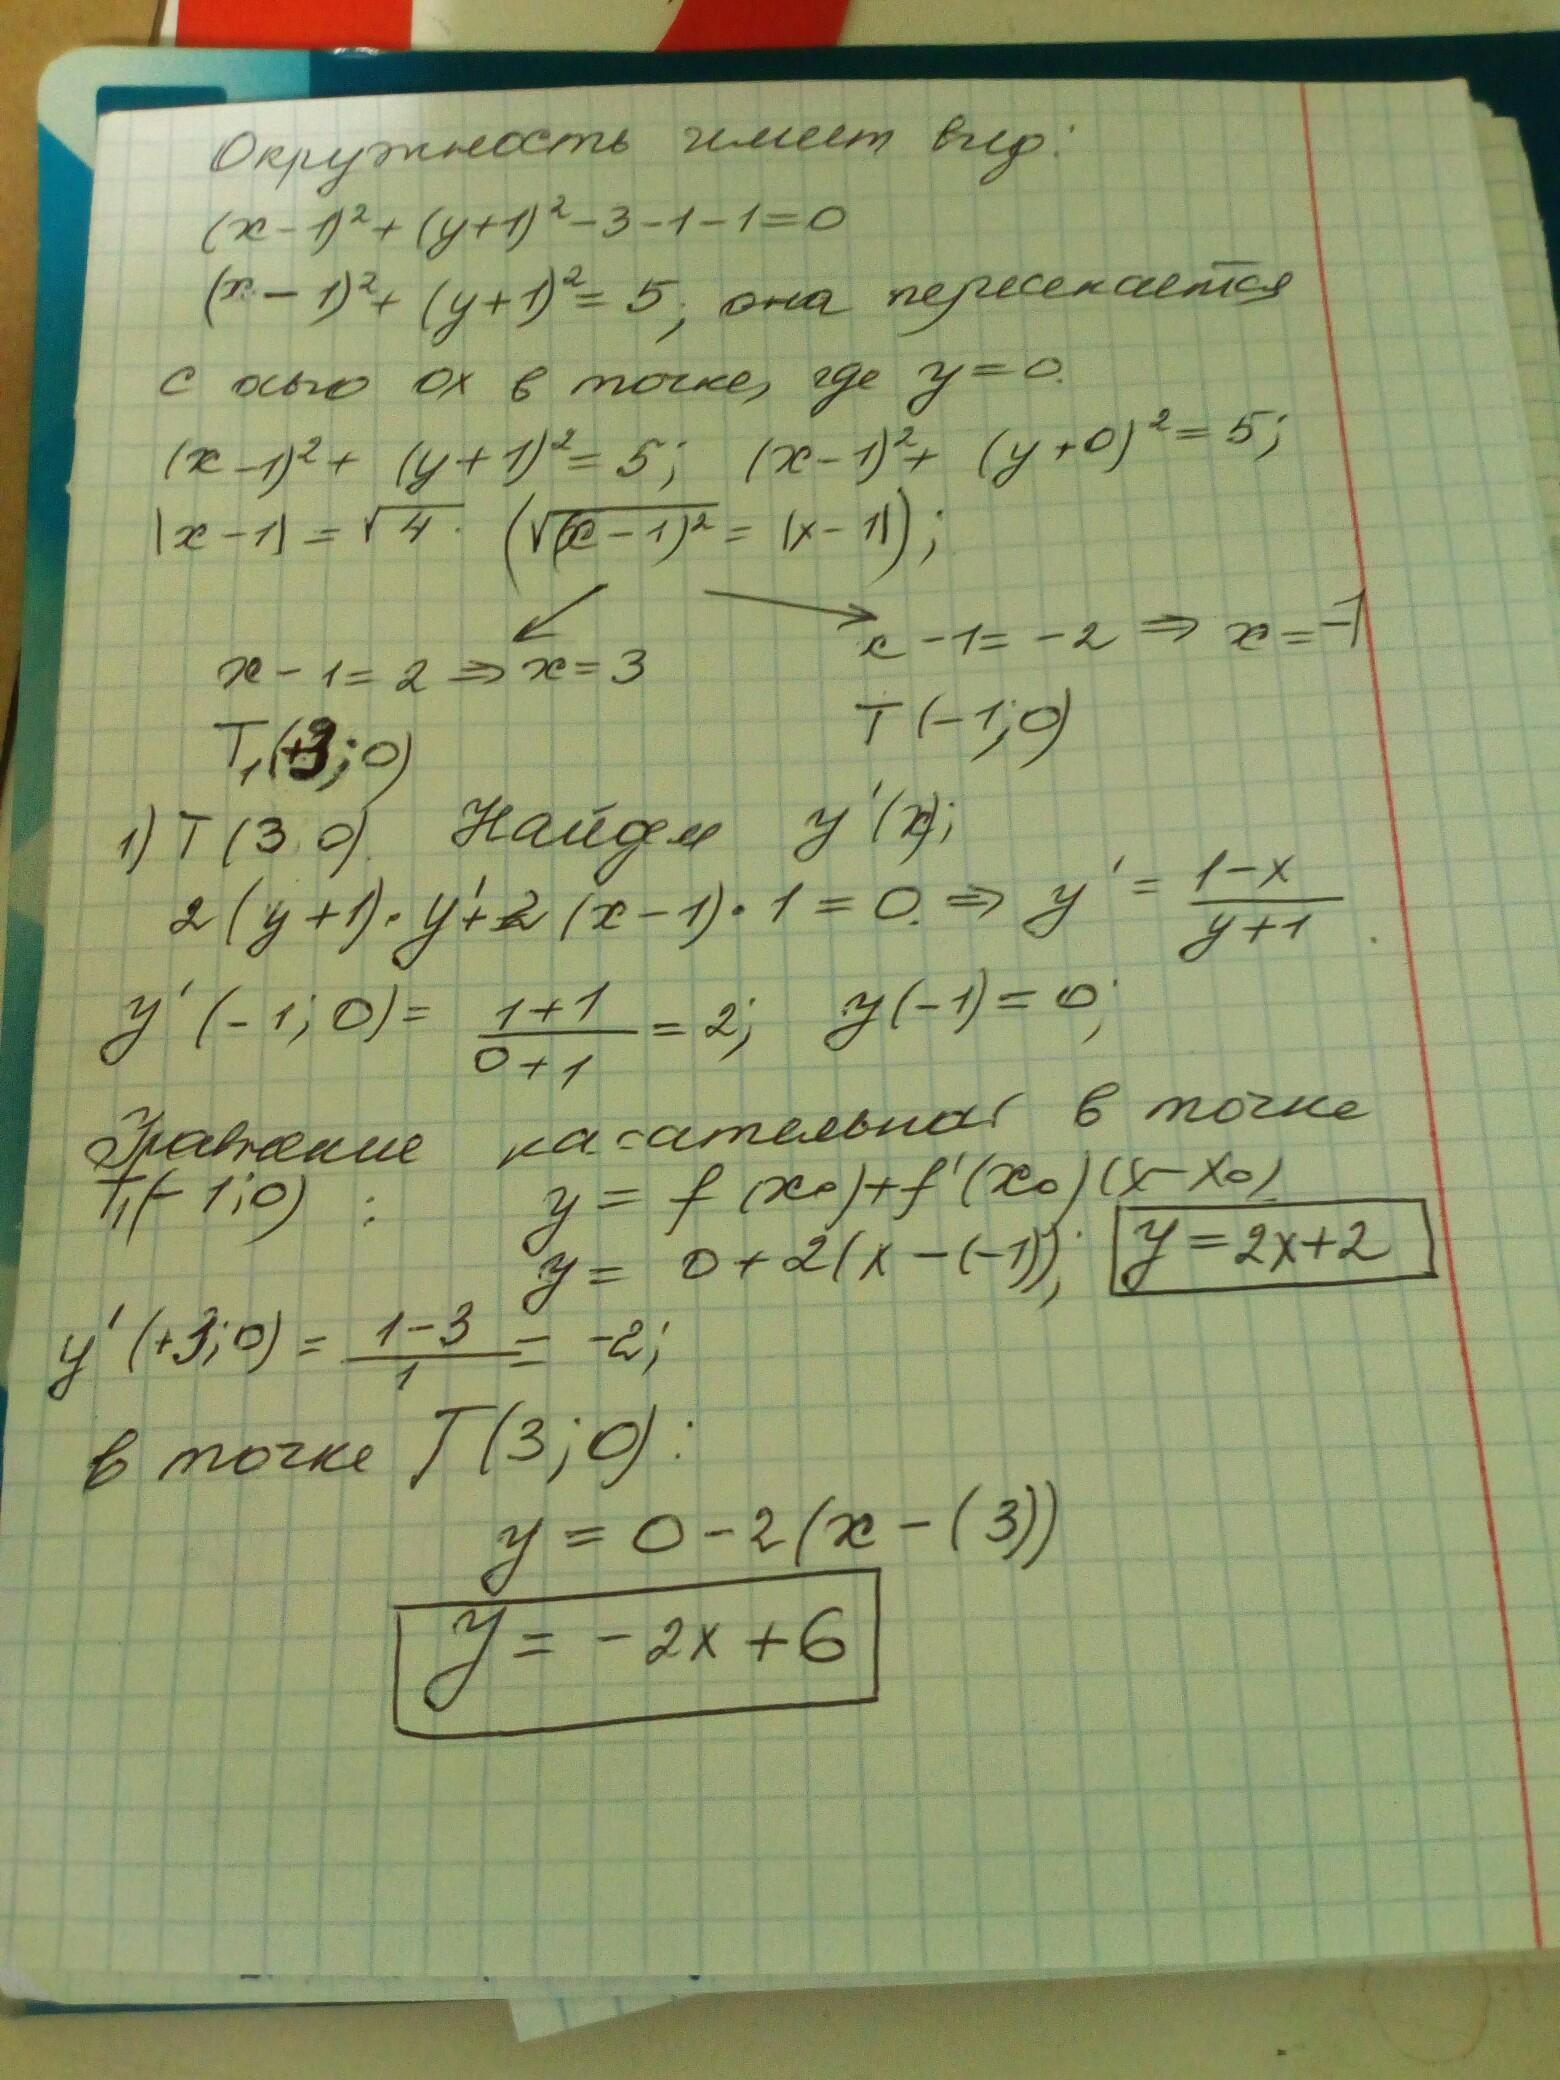 Окружность имеет вид:
(x-1)²+(y+1)²-3-1-1=0
(x-1)²+(y+1)²=5; она пересекается
с осью ox в точке, где y=0.
(x-1)²+(y+1)²=5; (x-1)²+(y+0)²=5;
|x-1|=√4. (√(x-1)²=|x-1|);
x-1=2⇒x=3 x-1=-2⇒x=-1
T₁(+3;0) T(-1;0)
1) T(3 0). Найдем y'(x);
2(y+1)·y'+2(x-1)·1=0.⇒ y'=(1-x)/(y+1).
y'(-1;0)=(1+1)/(0+1)=2; y(-1)=0;
Уравнение касательной в точке
T₁(-1;0): y=f(x₀)+f'(x₀)(x-x₀)
y=0+2(x-(-1)); y=2x+2
y'(+3;0)=(1-3)/1=-2;
в точке T(3;0):
y=0-2(x-(3))
y=-2x+6